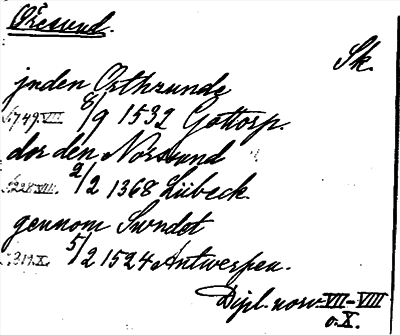 Øresund.
Sk.
jnden Orthzunde
s. 749. VII. 8/9 1532 Gottorp.
dor den Norssund
s. 228. VII. 2/2 1368 Lübeck.
gennom Swndet
s. 319. X. 5/2 1524 Antwerpen.
Dipl. norv. VII-VIII
o. X.